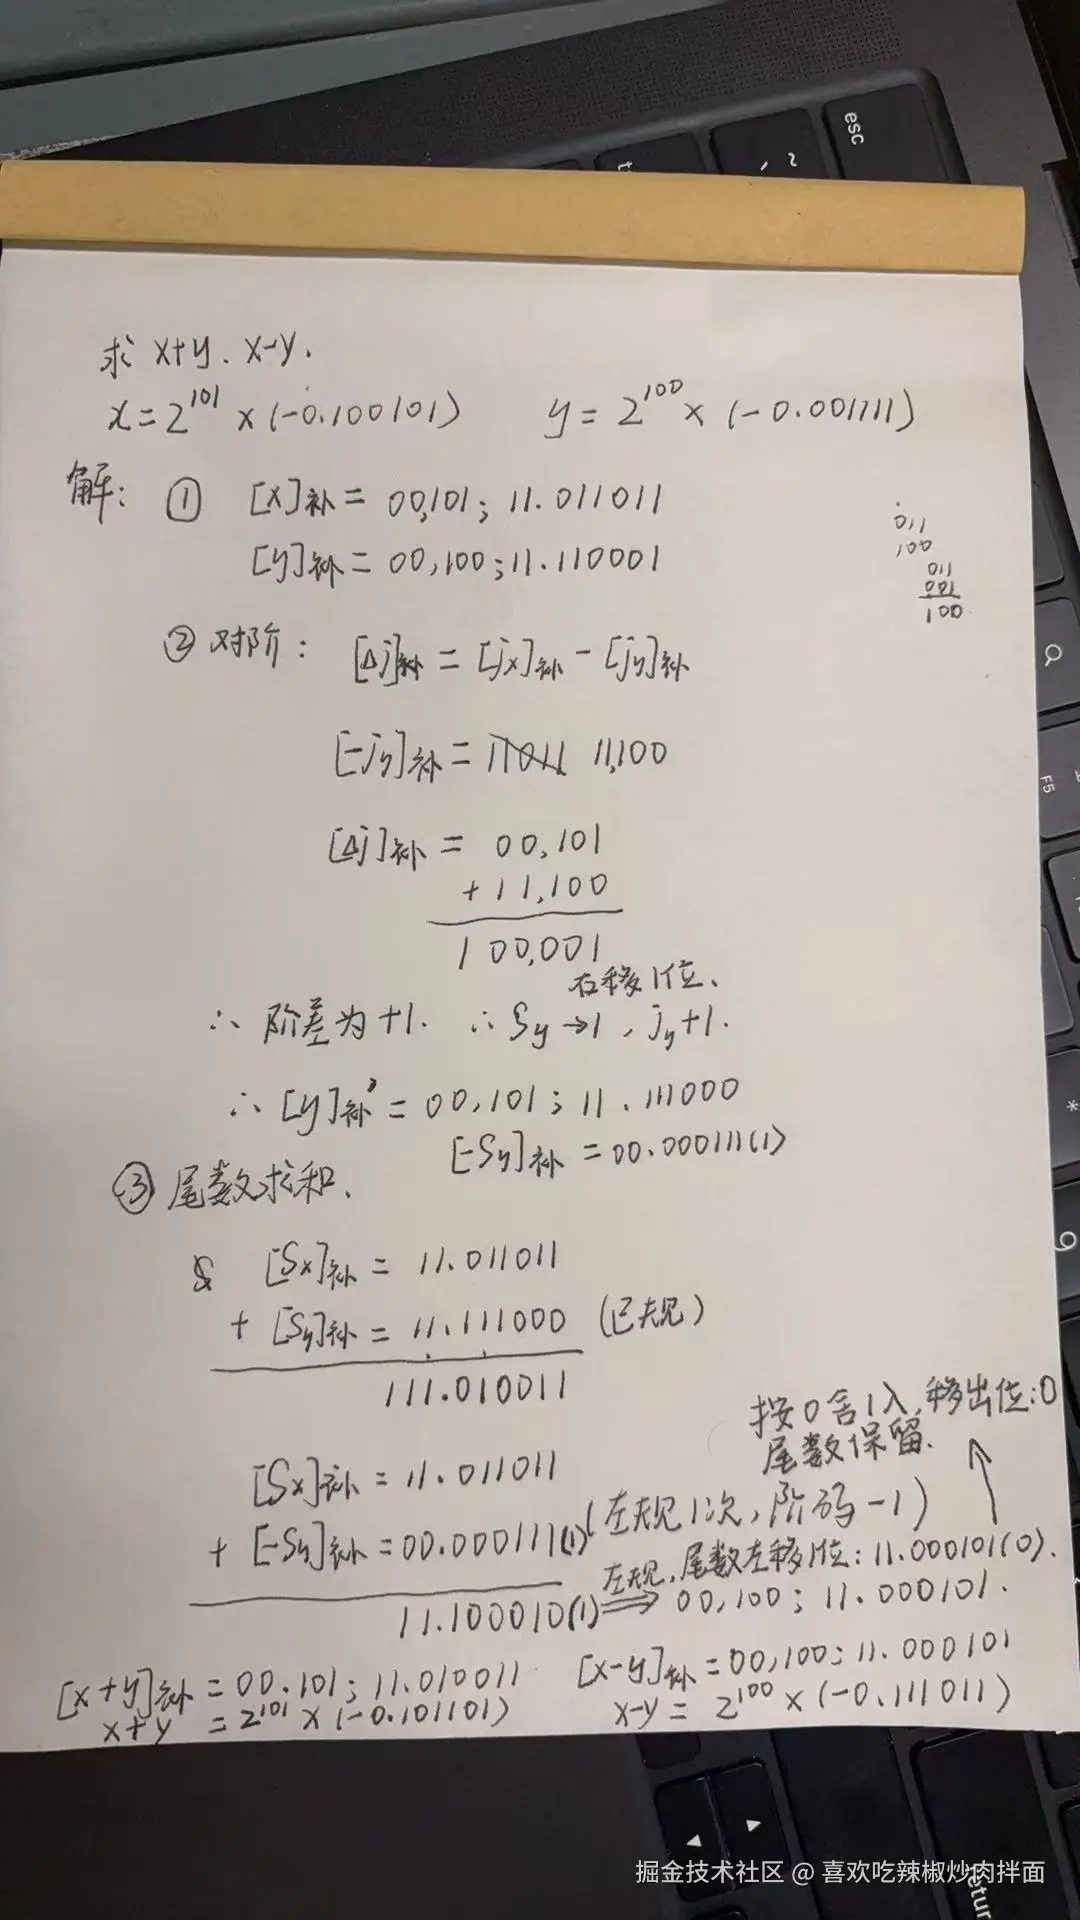 求 x+y、x-y.
x=2^101 ×(-0.100101)  y=2^100×(-0.001111)
解: ① [x]补= 00,101; 11.011011
[y]补= 00,100;11.110001
011
100
011
001
100
② 对阶: [Δj]补=[jx]补-[jy]补
[-jy]补= 11,100
[Δj]补= 00,101
+11,100
1 00,001
右移1位、
∴ 阶差为+1. ∴ Sy→1, jy+1.
∴ [y]补' = 00,101; 11.111000
[-Sy]补=00.000111(1)
③ 尾数求和、
[Sx]补= 11.011011
+ [Sy]补= 11.111000 (已规)
111.010011
按0舍1入,移出位:0
尾数保留.
[Sx]补=11.011011
+ [-Sy]补=00.000111(1) (左规1次,阶码-1)
左规,尾数左移1位:11.000101(0).
11.100010(1) ⇒ 00,100; 11.000101.
[x+y]补=00.101; 11.010011
x+y =2^101×(-0.101101)
[x-y]补=00,100; 11.000101
x-y= 2^100×(-0.111011)
esc
F5
9
retur
掘金技术社区 @ 喜欢吃辣椒炒肉拌面